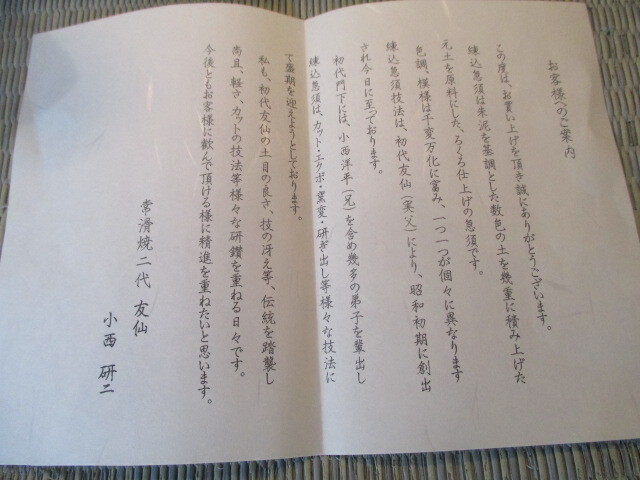 お客様へのご案内
この度は、お買い上げを頂き誠にありがとうございます。
練込急須は朱泥を基調とした数色の土を幾重に積み上げた
元土を原料にした、ろくろ仕上げの急須です。
色調、模様は千変万化に富み、一つ一つが個々に異なります
練込急須技法は、初代友仙(実父)により、昭和初期に創出
され今日に至っております。
初代門下には、小西洋平(兄)を含め幾多の弟子を輩出し
練込急須は、カット・エクボ・窯変・研ぎ出し等様々な技法に
て盛期を迎えようとしております。
私も、初代友仙の土目の良さ、技の冴え等、伝統を踏襲し
尚且、軽さ、カットの技法等様々な研鑽を重ねる日々です。
今後ともお客様に歓んで頂ける様に精進を重ねたいと思います。
常滑焼二代 友仙
小西 研二